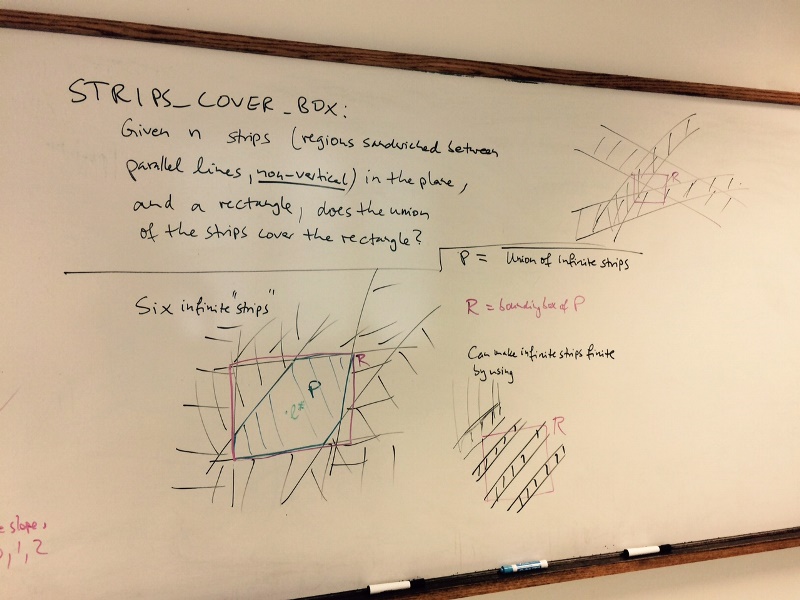 STRIPS_COVER_BOX:
Given n strips (regions sandwiched between
parallel lines, non-vertical) in the plane,
and a rectangle, does the union
of the strips cover the rectangle?
R
P = Union of infinite strips
Six infinite "strips"
R
P
R = bounding box of P
Can make infinite strips finite
by using
R
slope,
1, 2